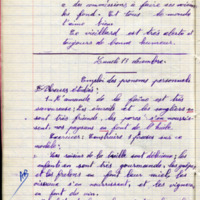 a des commissions à faire au
les fend. Et tous le monde
l'aime bien.
Ce vieillard est très alerte et
toujours de bonne humeur.
Lundi 17 décembre.
Emploi des pronoms personnels
L'amande de la faine est très
savoureuse; les
sont très friands, les porcs s'en nourris-
sent; nos paysans en font de l'huile.
Exercice: Construire 3 phrases sur ce
modèle:
Les raisins de la treille sont délicieux; les
enfants en sont très gourmands, les guêpes
et les frelons en font leur miel; les
oiseaux s'en nourrissent, et les vignerons
en font du vin.